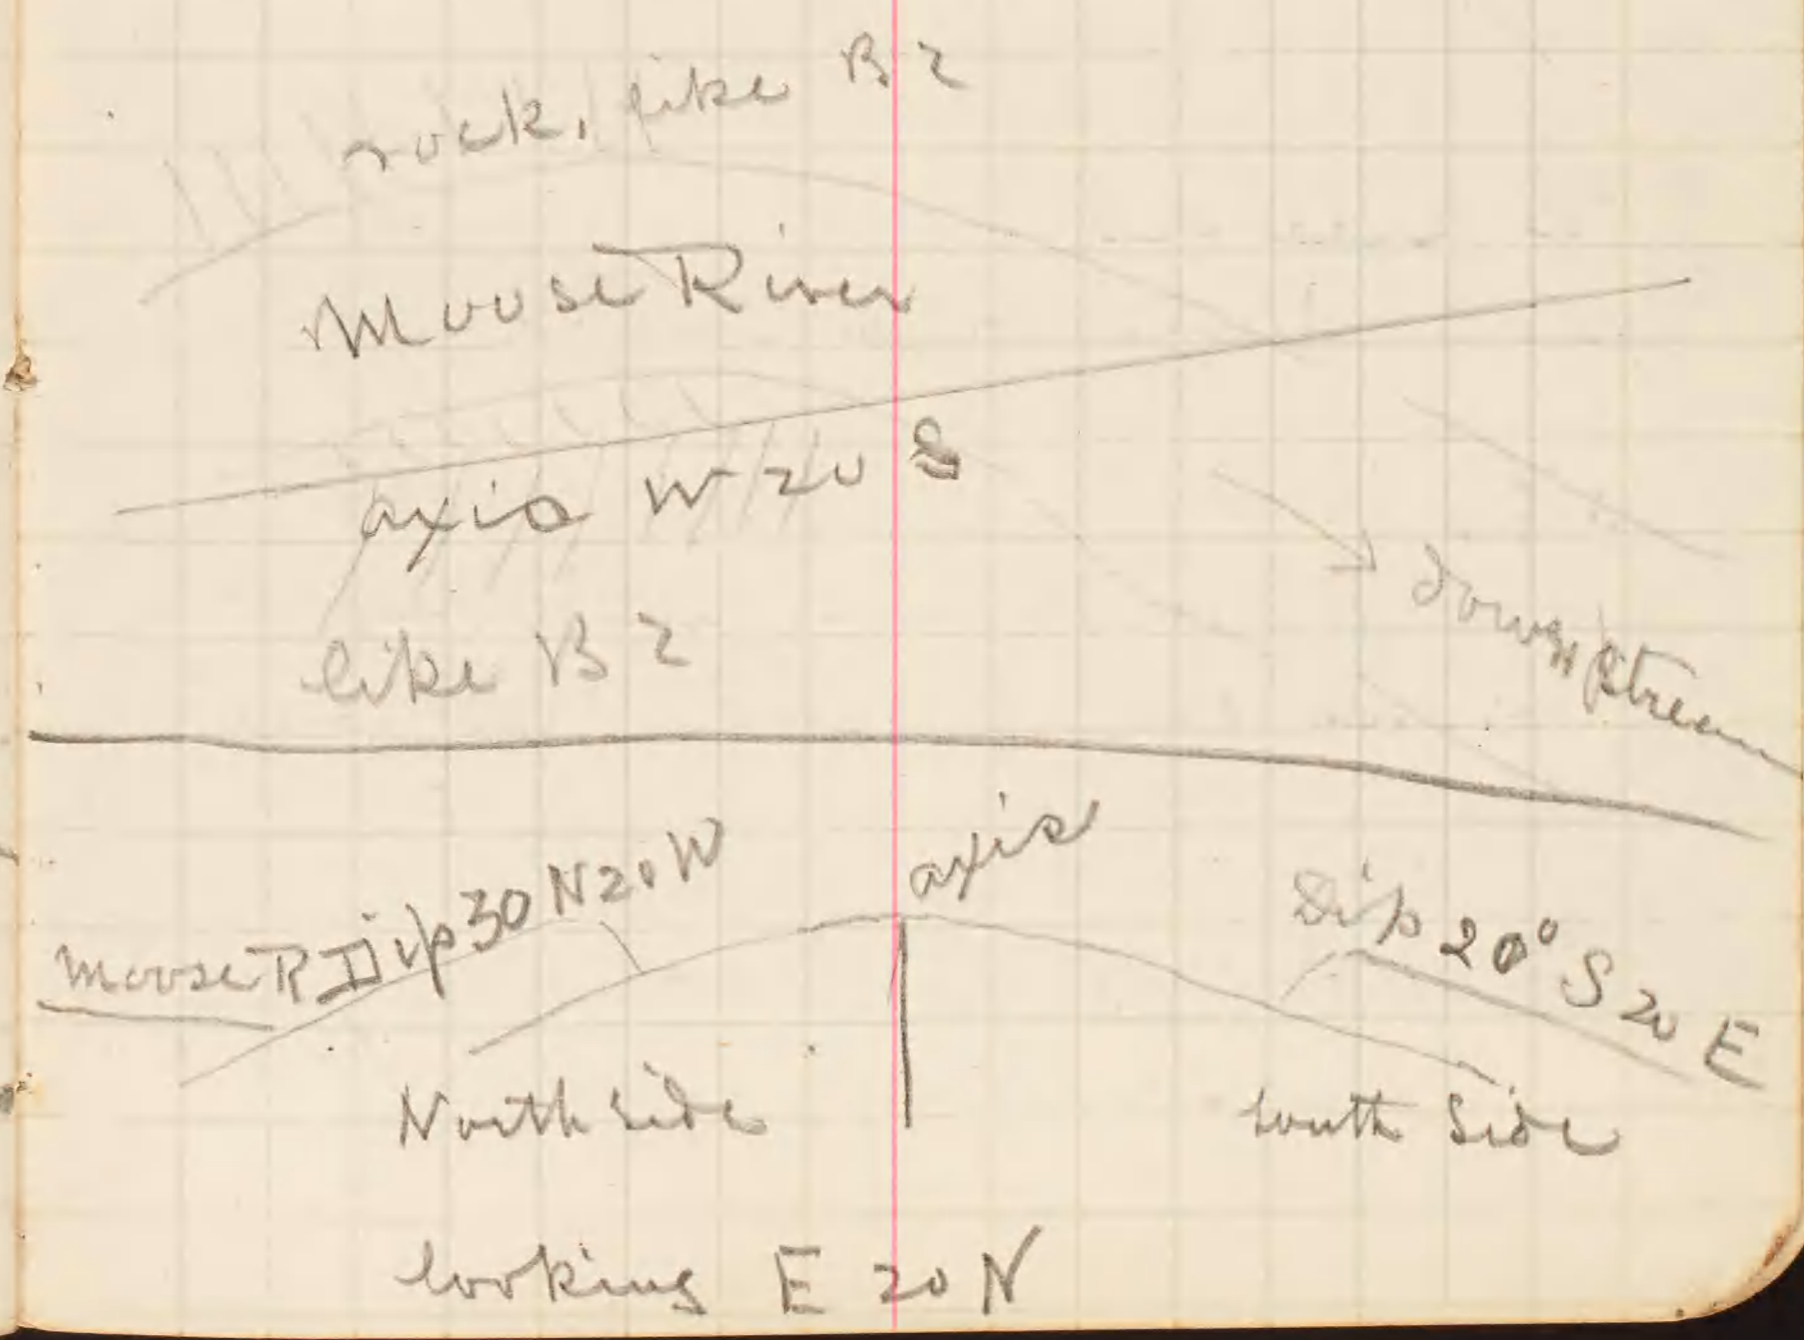 rock, like B2
Moose River
axis W 20 S
down stream
like B2
axis
Moose R Dip 30 N 20 W
Dip 20° S 20 E
North Side
South Side
looking E 20 N